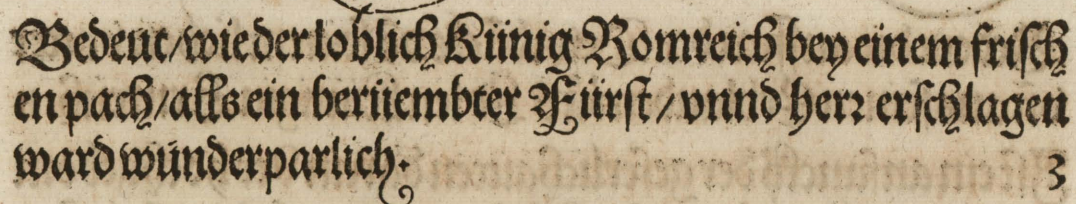 Bedeut/wie der loblich Künig Romreich bey einem frisch
en pach/alls ein berüembter Fürst/vnnd herr erschlagen
ward wünderparlich. 3